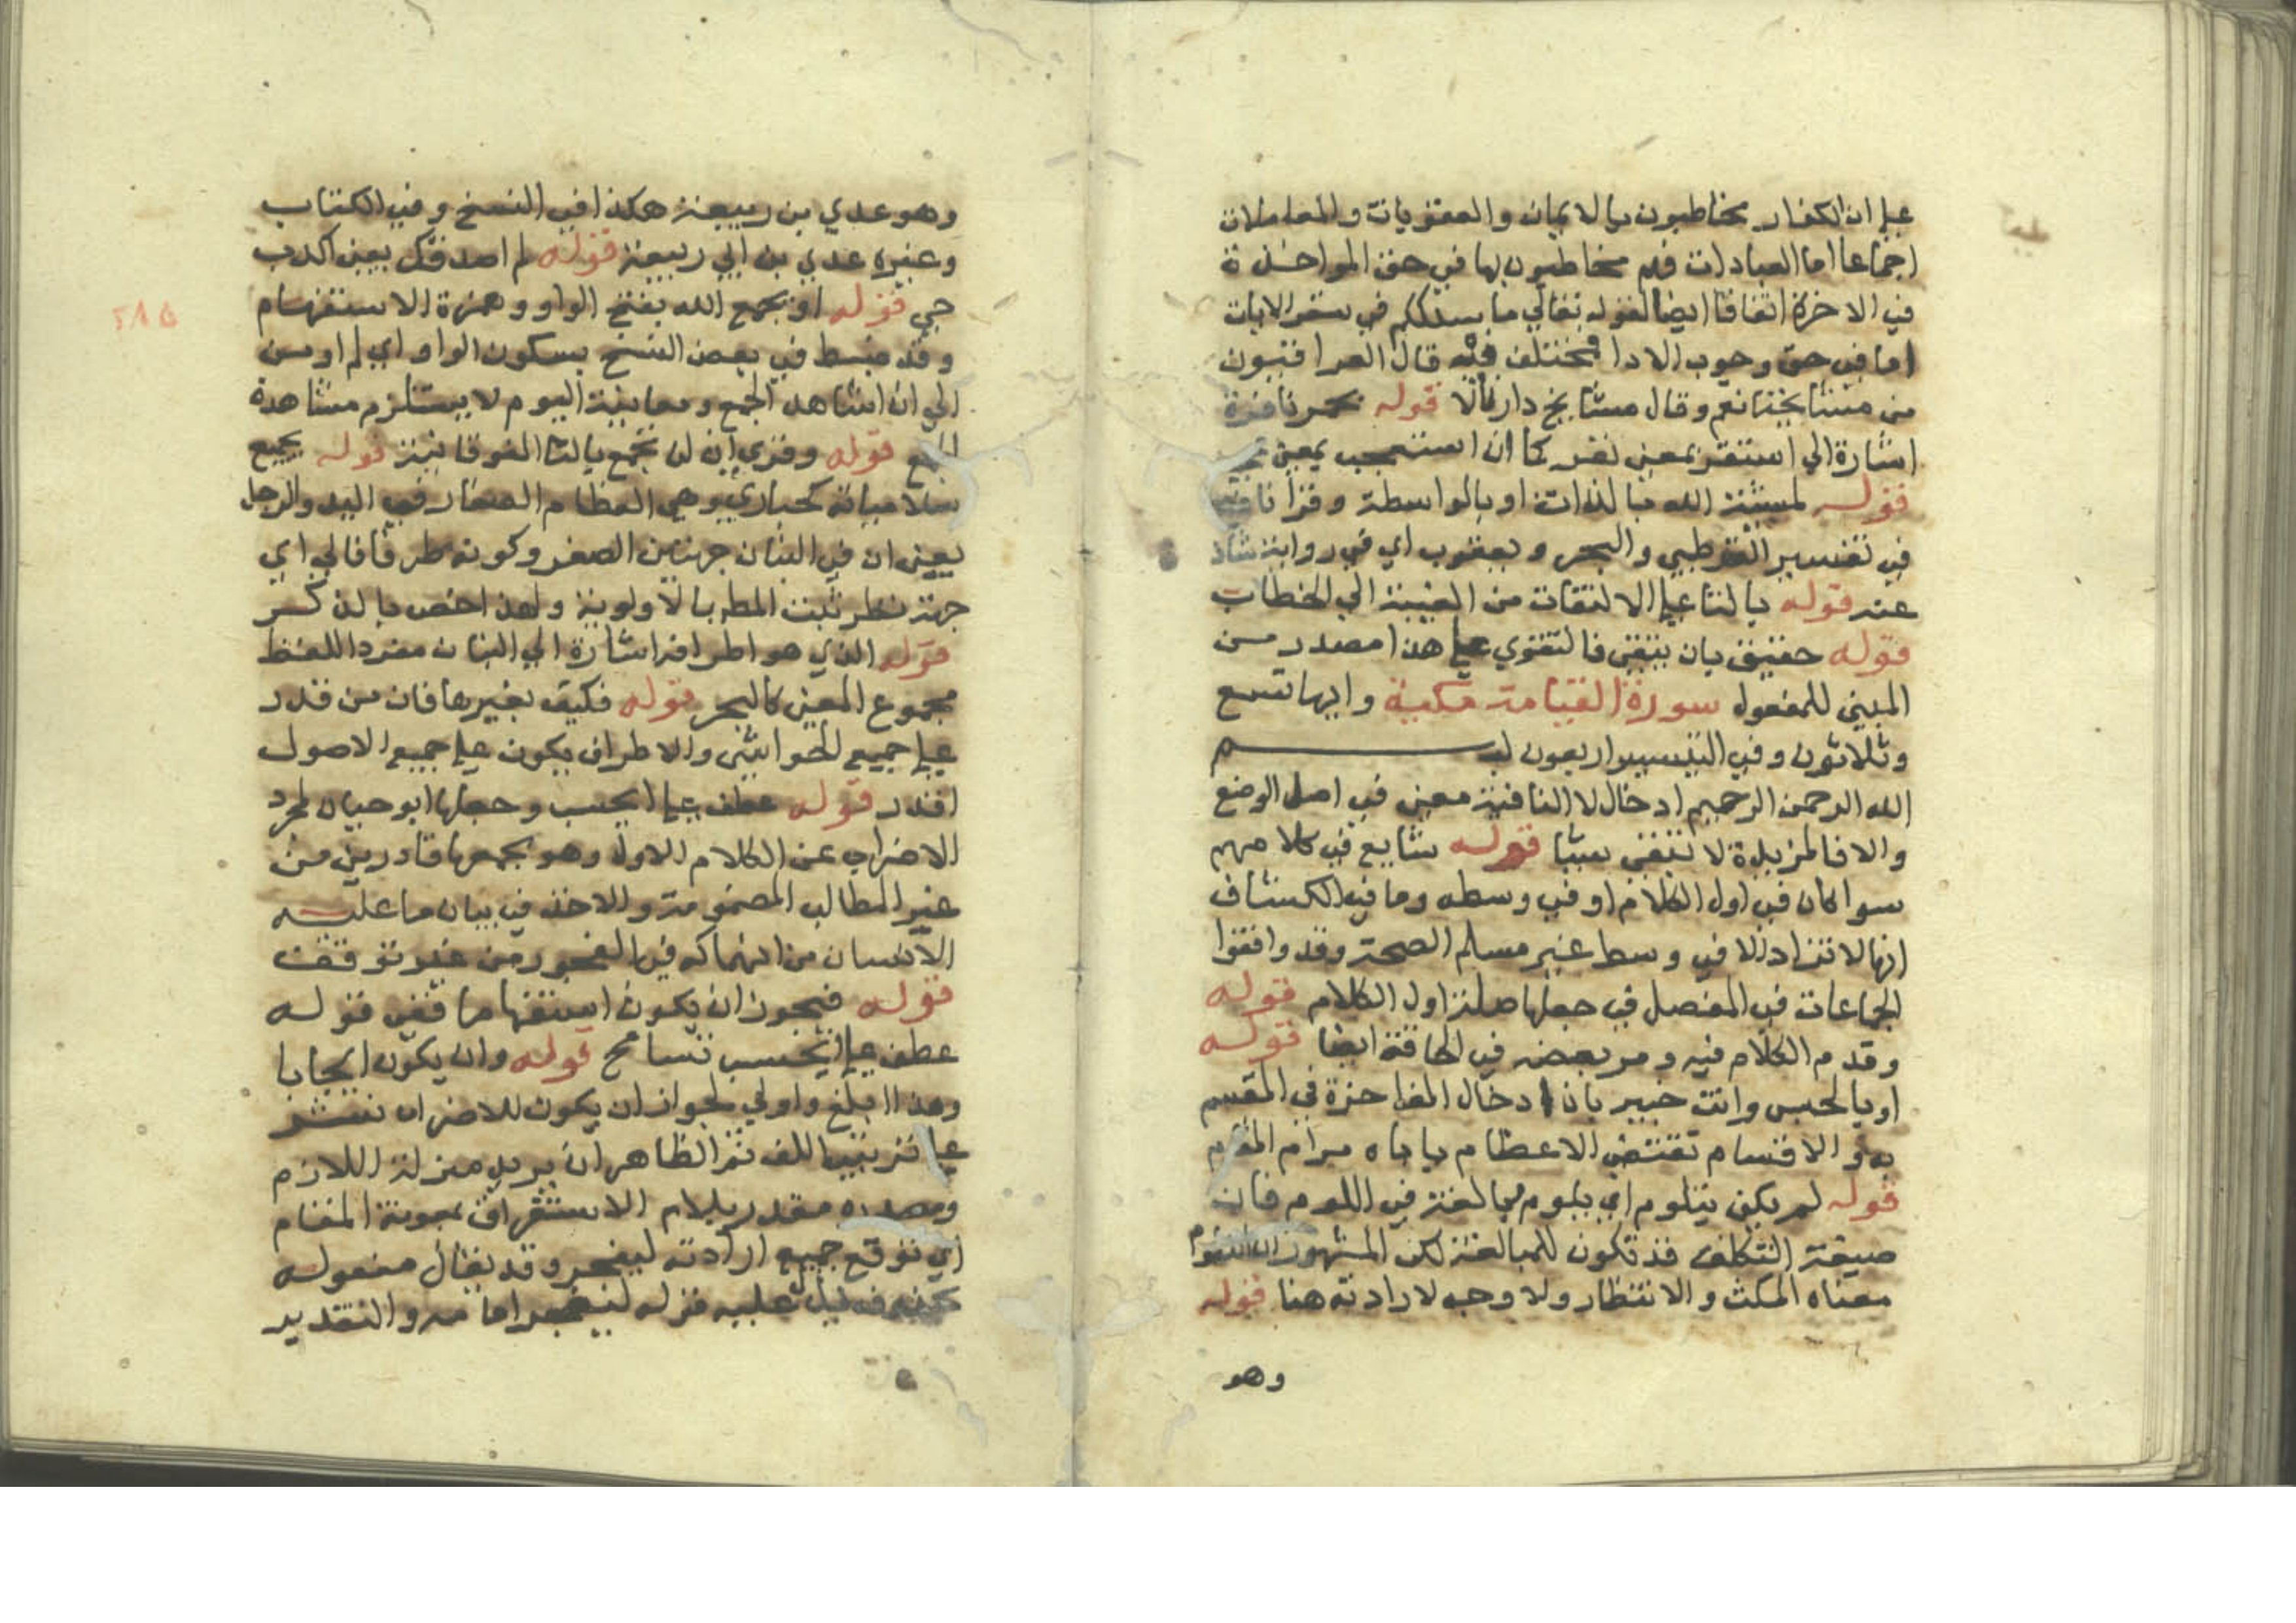 على ان الكفار مخاطبون بالايمان والعقوبات والمعاملات
اجماعا اما العبادات فهم مخاطبون بها في حق المواخذة
في الاخرة اتفاقا ايضا لقوله تعالى ما سلككم في سقر الايات
اما في حق وجوب الادا فمختلف فيه قال العراقيون
من مشايخنا نعم وقال مشايخ دارنا لا قوله حمر نافرة
اشارة الى استنفر بمعنى نفر كما ان استعجب بمعنى
قوله لمشيئة الله بالذات او بالواسطة وقرا نافع
في تفسير القرطبي والبحر ويعقوب اي في رواية شاذ
عنه قوله بالتا على الالتفات من الغيبة الى الخطاب
قوله حقيق بان يتقى فالتقوى على هذا مصدر من
المبني للمفعول سورة القيامة مكية وايها تسع
وثلاثون وفي التيسير اربعون بسم
الله الرحمن الرحيم ادخال لا النافية معنى في اصل الوضع
والا فالمزيدة لا تنفى شيئا قوله شايع في كلامهم
سوا كان في اول الكلام او في وسطه وما في الكشاف
انها لا تزاد الا في وسط غير مسلم الصحة وقد وافقوا
الجماعات في المفصل في جعلها صلة اول الكلام قوله
وقدم الكلام فيه ومر بعضه في الحاقة ايضا قوله
او بالجنس وانت خبير بان ادخال الفاجرة في المقسم
به والاقسام تقتضي الاعظام ياباه مرام المقام
قوله لم يكن يتلوم اي يلوم مبالغة في اللوم فان
صيغة التكلف قد تكون للمبالغة لكن المشهور ان التلوم
معناه المكث والانتظار ولا وجه لارادته هنا قوله
وهو
٢٨٥
وهو عدي بن ربيعة هكذا في النسخ وفي الكتاب
وغيره عدي بن ابي ربيعة قوله لم اصدقك بعنى اكذب
حي قوله او يجمع الله بفتح الواو وهمزة الاستفهام
وقد ضبط في بعض النسخ بسكون الواو اي لم اومن
الى ان اشاهد الجمع ومعاينة اليوم لا يستلزم مشاهدة
الجمع قوله وقري ان لن تجمع بالتا الفوقانية قوله يجمع
سلامياته كحبارى وهي العظام الصغار في اليد والرجل
يعنى ان في البنان جهتين الصغر وكونه طرفا فالى اي
جهة نظر ثبت المط بالاولوية ولهذا خص بالذكر
قوله الذي هو اطرافه اشارة الى البنان مفرد اللفظ
مجموع المعنى كالبحر قوله فكيف بغيرها فان من قدر
على جميع الحواشي والاطراف يكون على جميع الاصول
اقدر قوله عطف على ايحسب وجعلها ابو حيان لمجرد
الاضراب عن الكلام الاول وهو نجمعها قادرين من
غير المطالب المضمومة والاخذ في بيان ما عليه
الانسان من انهماكه في الفجور من غير توقف
قوله فيجوز ان يكون استفهاما ففي قوله
عطف على ايحسب تسامح قوله وان يكون ايجابا
وهذا ابلغ واولى لجواز ان يكون للاضراب نشر
على ترتيب اللف ثم الظاهر ان يريد منزلة اللازم
ومصدره مقدر بلام الاستغراق بمعونة المقام
اي توقع جميع ارادته ليفجر وقد يقال مفعوله
عليه قوله ليفجر امامه والتقدير